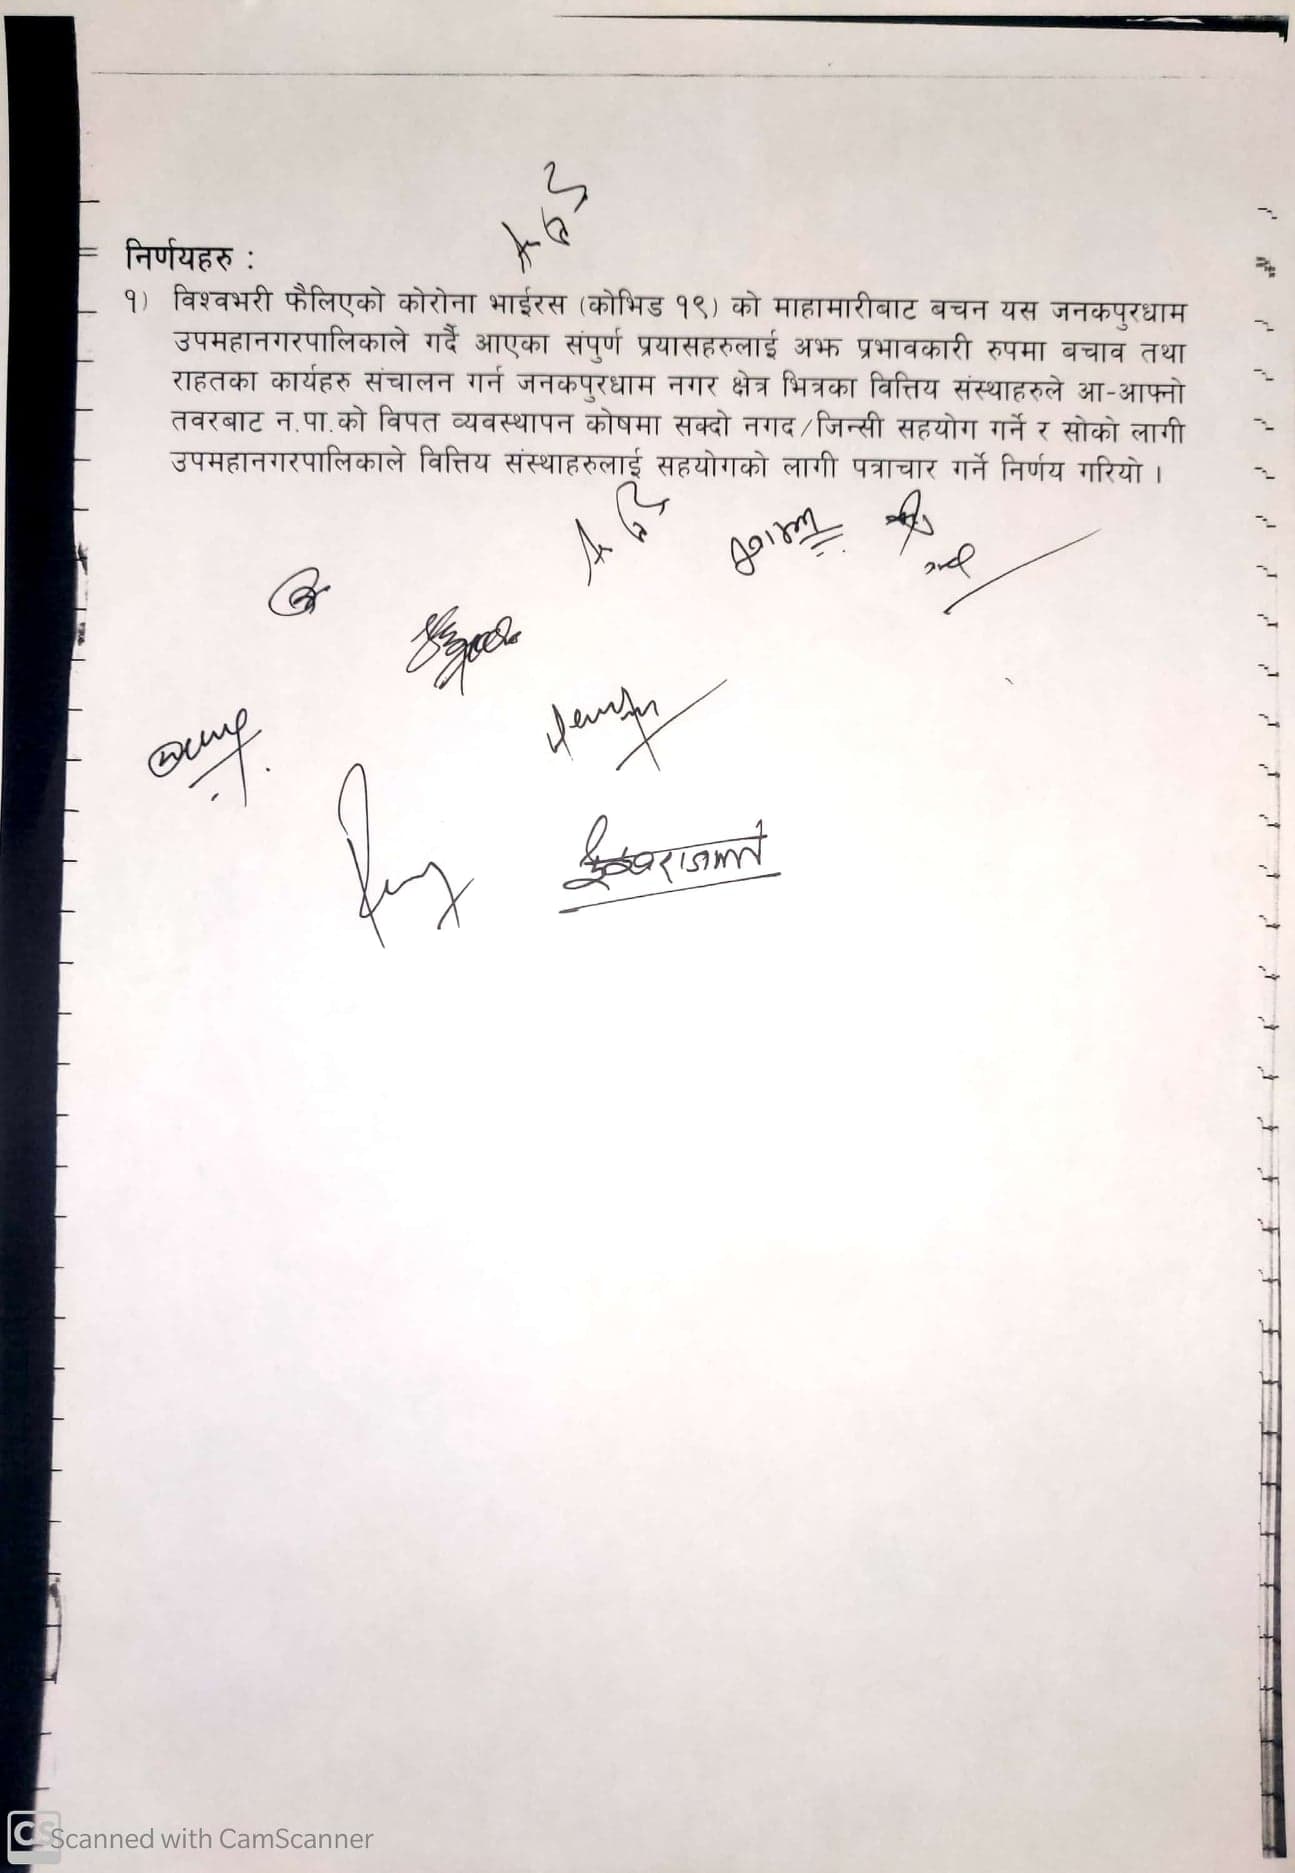 निर्णयहरु :
१) विश्वभरी फैलिएको कोरोना भाईरस (कोभिड १९) को माहामारीबाट बचन यस जनकपुरधाम
उपमहानगरपालिकाले गर्दै आएका संपुर्ण प्रयासहरुलाई अझ प्रभावकारी रुपमा बचाव तथा
राहतका कार्यहरु संचालन गर्न जनकपुरधाम नगर क्षेत्र भित्रका वित्तिय संस्थाहरुले आ-आफ्नो
तवरबाट न.पा.को विपत व्यवस्थापन कोषमा सक्दो नगद/जिन्सी सहयोग गर्ने र सोको लागी
उपमहानगरपालिकाले वित्तिय संस्थाहरुलाई सहयोगको लागी पत्राचार गर्ने निर्णय गरियो ।
CS Scanned with CamScanner